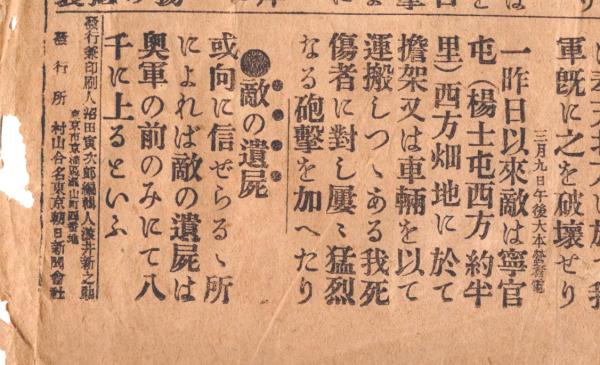 軍既に之を破壞せり
三月九日午後大本營着電
一昨日以來敵は寧官
屯(楊士屯西方約半
里)西方畑地に於て
擔架又は車輛を以て
運搬しつゝある我死
傷者に對し屢々猛烈
なる砲擊を加へたり
●敵の遺屍
或向に信ぜらるゝ所
によれば敵の遺屍は
奥軍の前のみにて八
千に上るといふ
發行兼印刷人 沼田寅次郎 編輯人 淺井新之助
東京市京橋區瀧山町四番地
發行所 村山合名東京朝日新聞會社